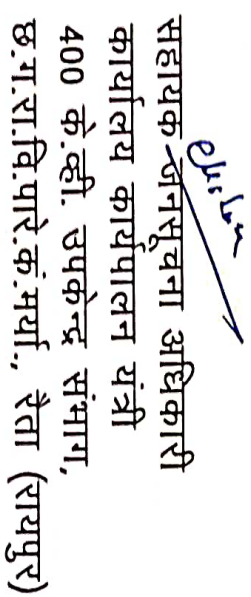 सहायक जनसूचना अधिकारी
कार्यालय कार्यपालन यंत्री
400 के.व्ही. उपकेन्द्र संभाग,
छ.ग.रा.वि.पारे.कं.मर्या., रैता (रायपुर)